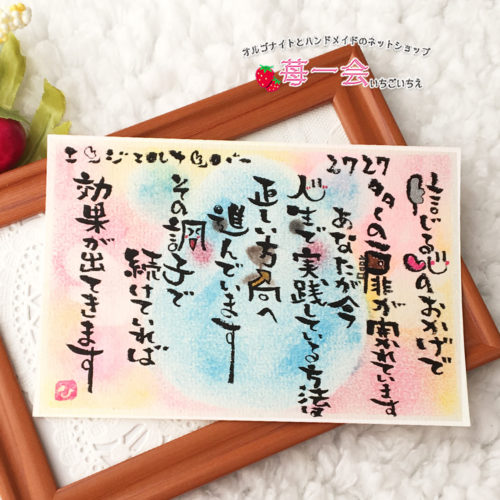 オルゴナイトとハンドメイドのネットショップ
苺一会
いちごいちえ
エンジェルナンバー
2727
信じる心のおかげで
多くの扉が開かれています
あなたが今
人生で実践している方法は
正しい方向へ
進んでいます
その調子で
続けていれば
効果が出てきます